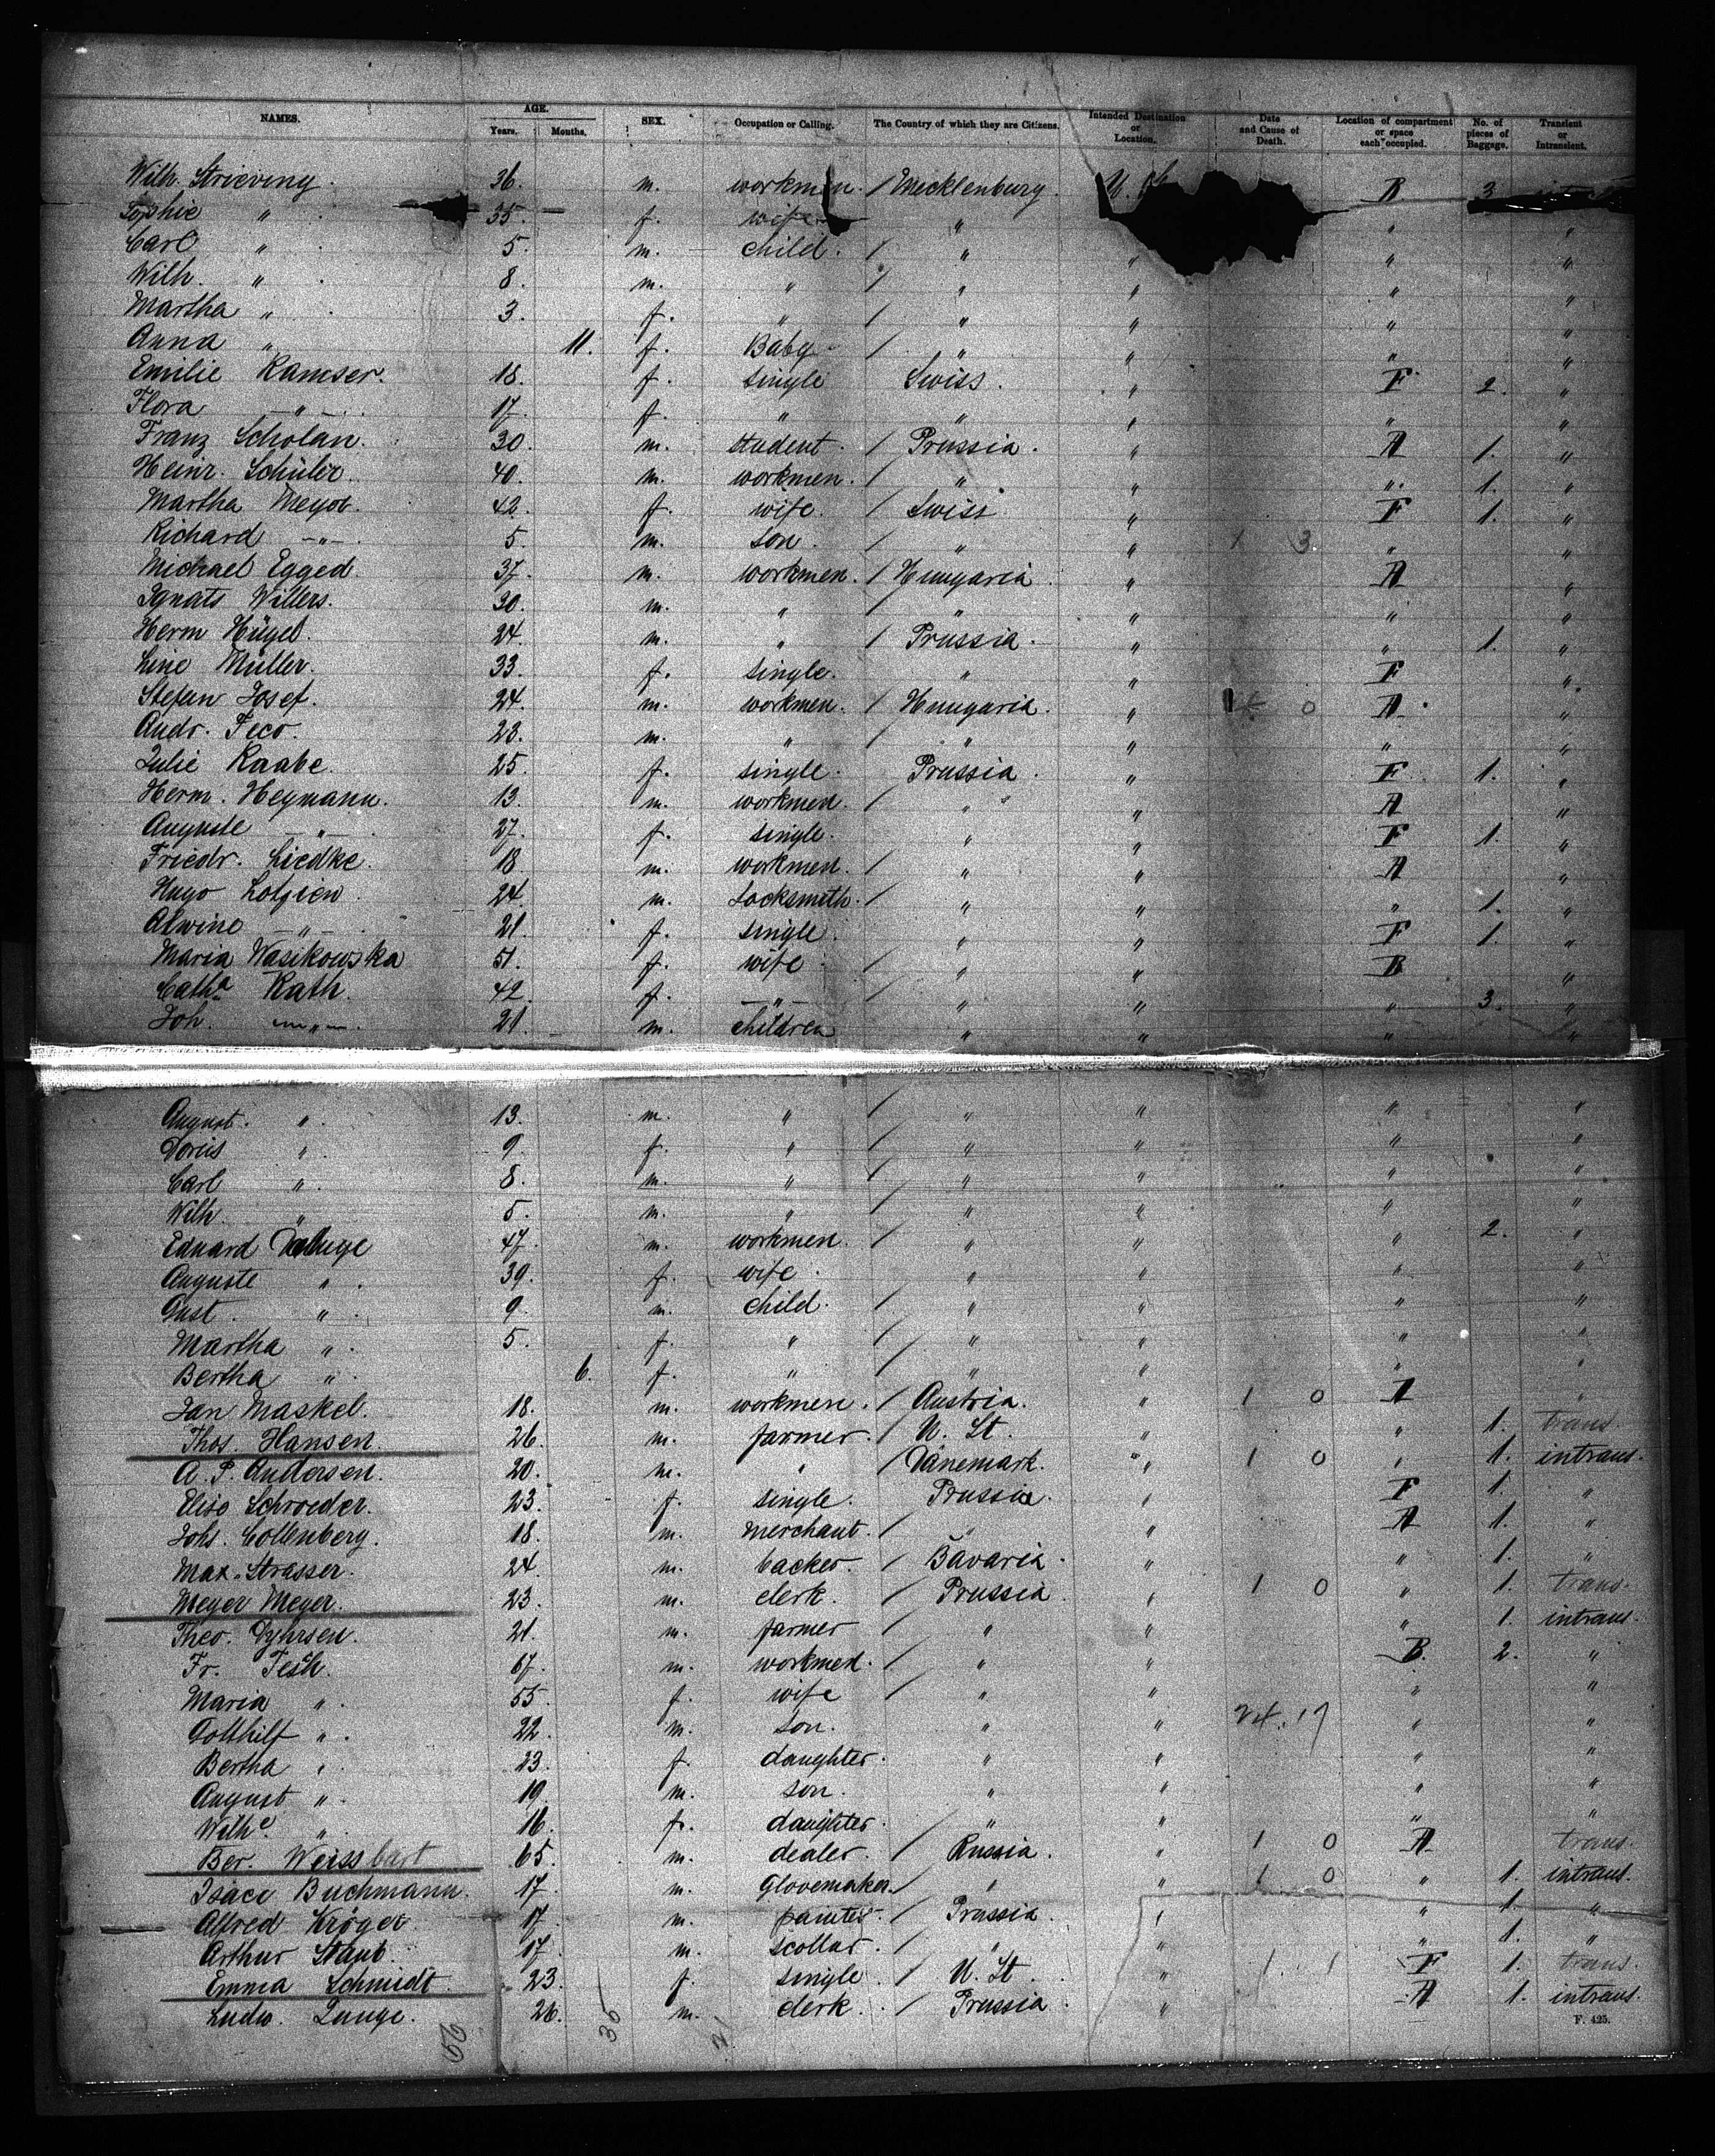 NAMES. AGE. Years. Months. SEX. Occupation or Calling. The Country of which they are Citizens. Intended Destination or Location. Date and Cause of Death. Location of compartment or space each occupied. No. of pieces of Baggage. Transient or Intransient.
Wilh. Strieving. 36. m. workmen. / Mecklenburg. U. B. 3
Sophie " 35. f. wife " " "
Carl " 5. m. child. / " " " "
Wilh. " 8. m. " / " " " "
Martha " 3. f. " / " " " "
Anna " 11. f. Baby / " " " "
Emilie Ramser. 18. f. single Swiss. " F 2. "
Flora -"- 17. f. " " " " "
Franz Scholan. 30. m. student. / Prussia. " A 1. "
Heinr. Schüler. 40. m. workmen. / " " " 1. "
Martha Meyer. 42. f. wife. / Swiss " F 1. "
Richard -"- 5. m. son. / " " 1 3 " "
Michael Egged. 37. m. workmen. / Hungaria " A "
Ignats Willers. 30. m. " / " " " "
Herm Hügel. 24. m. " / Prussia. " " 1. "
Line Müller. 33. f. single. " " F "
Stefan Josef. 24. m. workmen. / Hungaria. " 0 A "
Andr. Feco. 23. m. " / " " " "
Julie Raabe. 25. f. single. Prussia. " F 1. "
Herm. Heymann. 13. m. workmen. / " " A "
Auguste -"- 27. f. single. " " F 1. "
Friedr. Liedke. 18 m. workmen. / " " A "
Hugo Lotzien. 24. m. Locksmith. / " " " 1. "
Alwine -"- 21. f. single. " " F 1. "
Maria Wasikowska 51. f. wife / " " B "
Catha Rath. 42. f. -"- / " " " 3. "
Joh. -"- 21. m. children " " " "
August. " 13. m. " / " " " "
Doris " 9. f. " / " " " "
Carl " 8. m. " / " " " "
Wilh. " 5. m. " / " " " "
Eduard 47. m. workmen. / " " " 2. "
Auguste " 39. f. wife. " " " "
Gust. " 9. m. child. / " " " "
Martha " 5. f. " / " " " "
Bertha " 6. f. " / " " " "
Jan Maskel. 18. m. workmen. / Austria. " 1 0 A "
Thos. Hansen. 26. m. farmer. / U. St. " " 1. trans.
A. P. Andersen. 20. m. " / Dänemark. " 1 0 " 1. intrans.
Elise Schroeder. 23. f. single. Prussia. " F 1. "
Johs. Collenberg. 18. m. merchant. / " " A 1. "
Max. Strasser. 24. m. backer. / Bavaria. " " 1. "
Meyer Meyer. 23. m. clerk. / Prussia " 1 0 " 1. trans.
Theo. Dyhrsen. 21. m. farmer / " " " 1. intrans.
Fr. Tesch. 67. m. workmen. / " " B. 2. "
Maria " 55. f. wife / " " " "
Gotthilf " 22. m. son. " " 24. 17 " "
Bertha " 23. f. daughter. " " " "
August " 19. m. son. " " " "
Wilhe. " 16. f. daughter. / " " " "
Ber. Weissbart 65. m. dealer. / Russia. " 1 0 A trans.
Isace Buchmann. 17. m. Glovemaker. / " " 1 0 " 1. intrans.
Alfred Kröger 17. m. painter. / Prussia. " " 1. "
Arthur Staub. 17. m. scollar. / " " " 1. "
Emma Schmidt. 23. f. single. / U. St. " 1 1 F 1. trans.
Ludw. Lange. 26. m. clerk. / Prussia. " A 1. intrans.
F. 425.
29 36 21